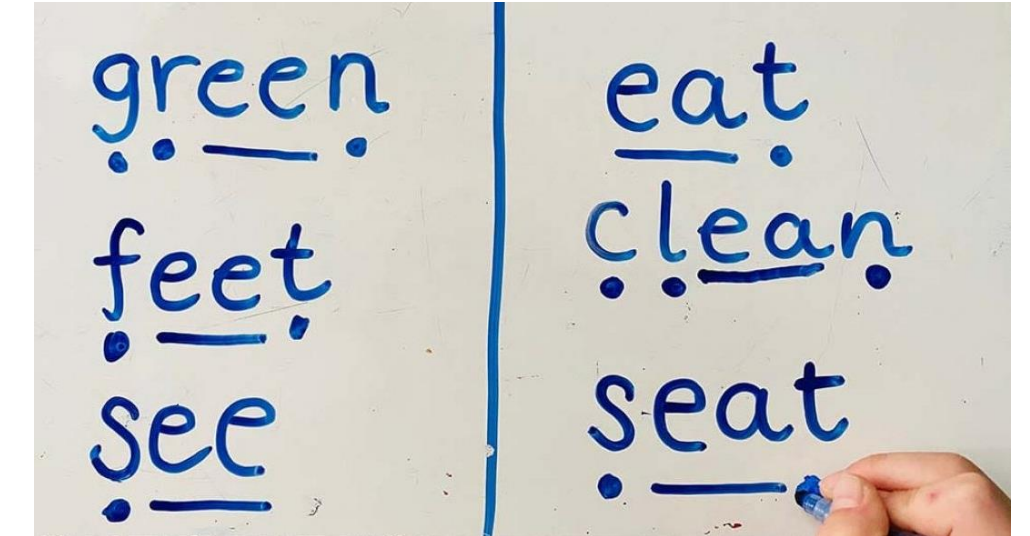 green
feet
see
eat
clean
seat